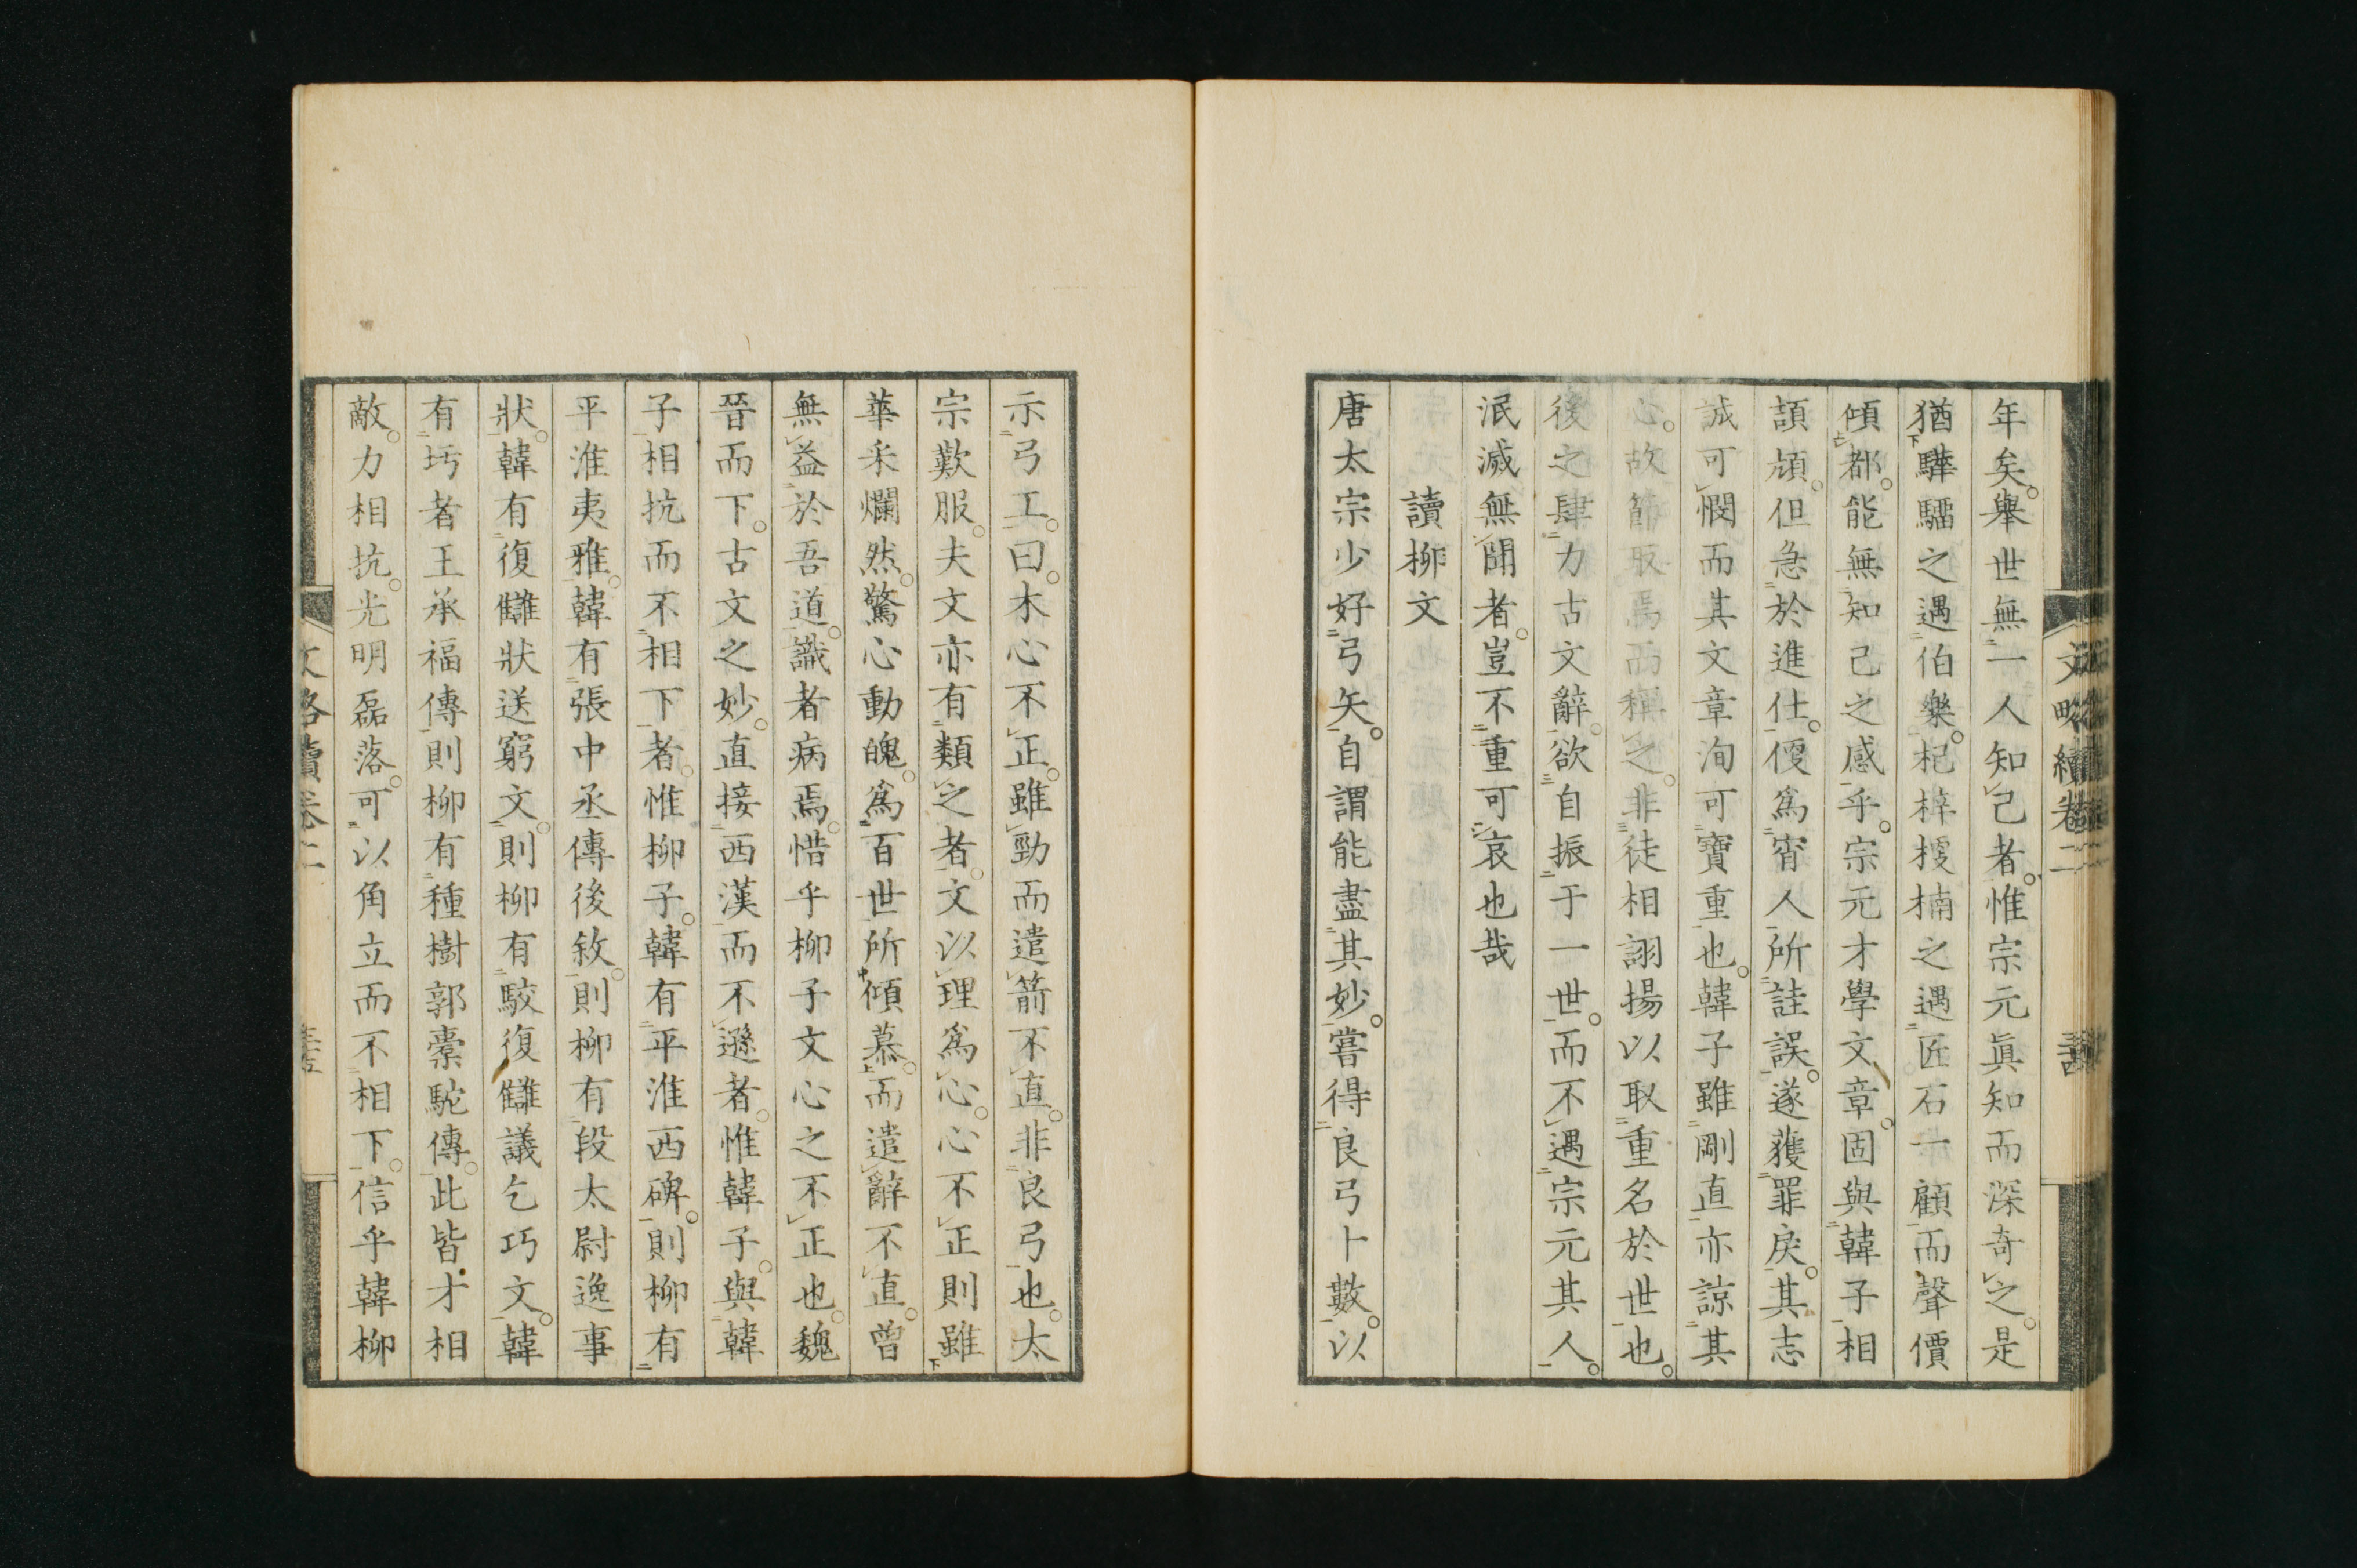 年矣。舉世無一人知己者。惟宗元眞知而深奇之。是
猶驊騮之遇伯樂。杞梓楩楠之遇匠石一顧而聲價
傾都。能無知己之感乎。宗元才學文章。固與韓子相
頡頏。但急於進仕。便爲宵人所詿誤。遂獲罪戾。其志
誠可憫而其文章洵可寶重也。韓子雖剛直亦諒其
心。故節取焉而稱之。非徒相詡揚以取重名於世也。
後之肆力古文辭。欲自振于一世。而不遇宗元其人。
泯滅無聞者。豈不重可哀也哉
讀柳文
唐太宗少好弓矢。自謂能盡其妙。嘗得良弓十數。以
示弓工。曰。木心不正。雖勁而遣箭不直。非良弓也。太
宗歎服。夫文亦有類之者。文以理爲心。心不正則雖
華采爛然。驚心動魄。爲百世所傾慕。而遣辭不直。曾
無益於吾道。識者病焉。惜乎柳子文心之不正也。魏
晉而下。古文之妙。直接西漢而不遜者。惟韓子。與韓
子相抗而不相下者。惟柳子。韓有平淮西碑。則柳有
平淮夷雅。韓有張中丞傳後敘。則柳有段太尉逸事
狀。韓有復讎狀送窮文。則柳有駁復讎議乞巧文。韓
有圬者王承福傳則柳有種樹郭橐駝傳。此皆才相
敵。力相抗。光明磊落。可以角立而不相下。信乎韓柳
文略續卷二